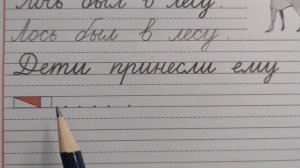 Лось был в лесу.
Лось был в лесу.
Дети принесли ему